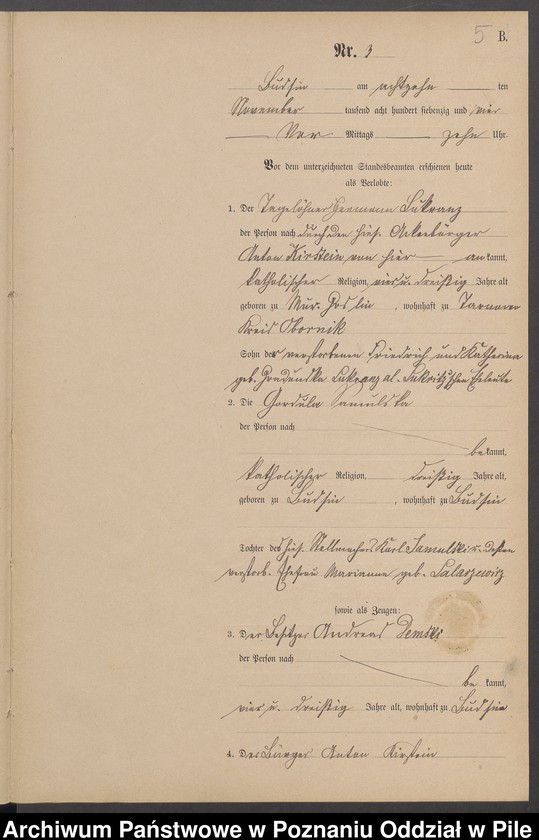 5 B.
Nr. 3
Budsin am achtzehn ten
November tausend acht hundert siebenzig und vier
Vor Mittags zehn Uhr.
Vor dem unterzeichneten Standesbeamten erschienen heute
als Verlobte:
1. Der Tagelöhner Hermann Lukranz
der Person nach durch den hies. Ackerbürger
Anton Kirstein von hier anerkannt,
katholischer Religion, vier u. dreißig Jahre alt
geboren zu Mur. Goslin, wohnhaft zu Tarnowo
Kreis Obornik
Sohn der verstorbenen Friedrich und Katharina
geb. Lukranz al. Eheleute
2. Die Gordula Samulska
der Person nach
bekannt,
katholischer Religion, dreißig Jahre alt,
geboren zu Budsin, wohnhaft zu Budsin
Tochter des hies. Stellmachers Karl Samulski u. dessen
verstorb. Ehefrau Marianna geb.
sowie als Zeugen:
3. Der Besitzer Andreas Demski
der Person nach
bekannt,
vier u. dreißig Jahre alt, wohnhaft zu Budsin
4. Der Bürger Anton Kirstein
Archiwum Państwowe w Poznaniu Oddział w Pile